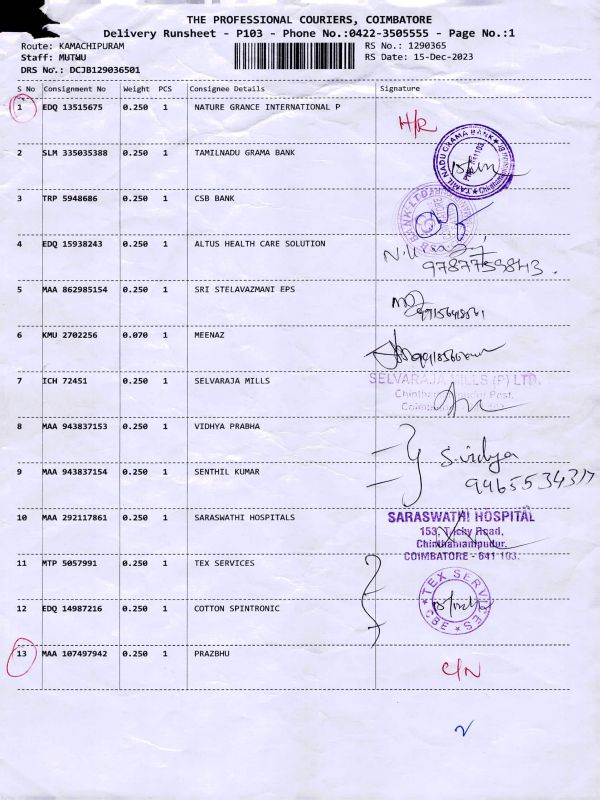 THE PROFESSIONAL COURIERS, COIMBATORE
Delivery Runsheet - P103 - Phone No.:0422-3505555 - Page No.:1
Route: KAMACHIPURAM RS No.: 1290365
Staff: MUTWU RS Date: 15-Dec-2023
DRS No.: DCJB129036501
S No Consignment No Weight PCS Consignee Details Signature
1 EDQ 13515675 0.250 1 NATURE GRANCE INTERNATIONAL P H/R
2 SLM 335035388 0.250 1 TAMILNADU GRAMA BANK
TAMIL NADU GRAMA BANK
3 TRP 5948686 0.250 1 CSB BANK
BANK LTD
4 EDQ 15938243 0.250 1 ALTUS HEALTH CARE SOLUTION
9787759843.
5 MAA 862985154 0.250 1 SRI STELAVAZMANI EPS
6 KMU 2702256 0.070 1 MEENAZ
7 ICH 72451 0.250 1 SELVARAJA MILLS
SELVARAJA MILLS (P) LTD.
8 MAA 943837153 0.250 1 VIDHYA PRABHA
S.vidya
9 MAA 943837154 0.250 1 SENTHIL KUMAR
10 MAA 292117861 0.250 1 SARASWATHI HOSPITALS
SARASWATHI HOSPITAL
153, Trichy Road,
Chinthamanipudur.
COIMBATORE - 641 103.
11 MTP 5057991 0.250 1 TEX SERVICES
TEX SERVICES
CBE
12 EDQ 14987216 0.250 1 COTTON SPINTRONIC
13 MAA 107497942 0.250 1 PRAZBHU C/N
2